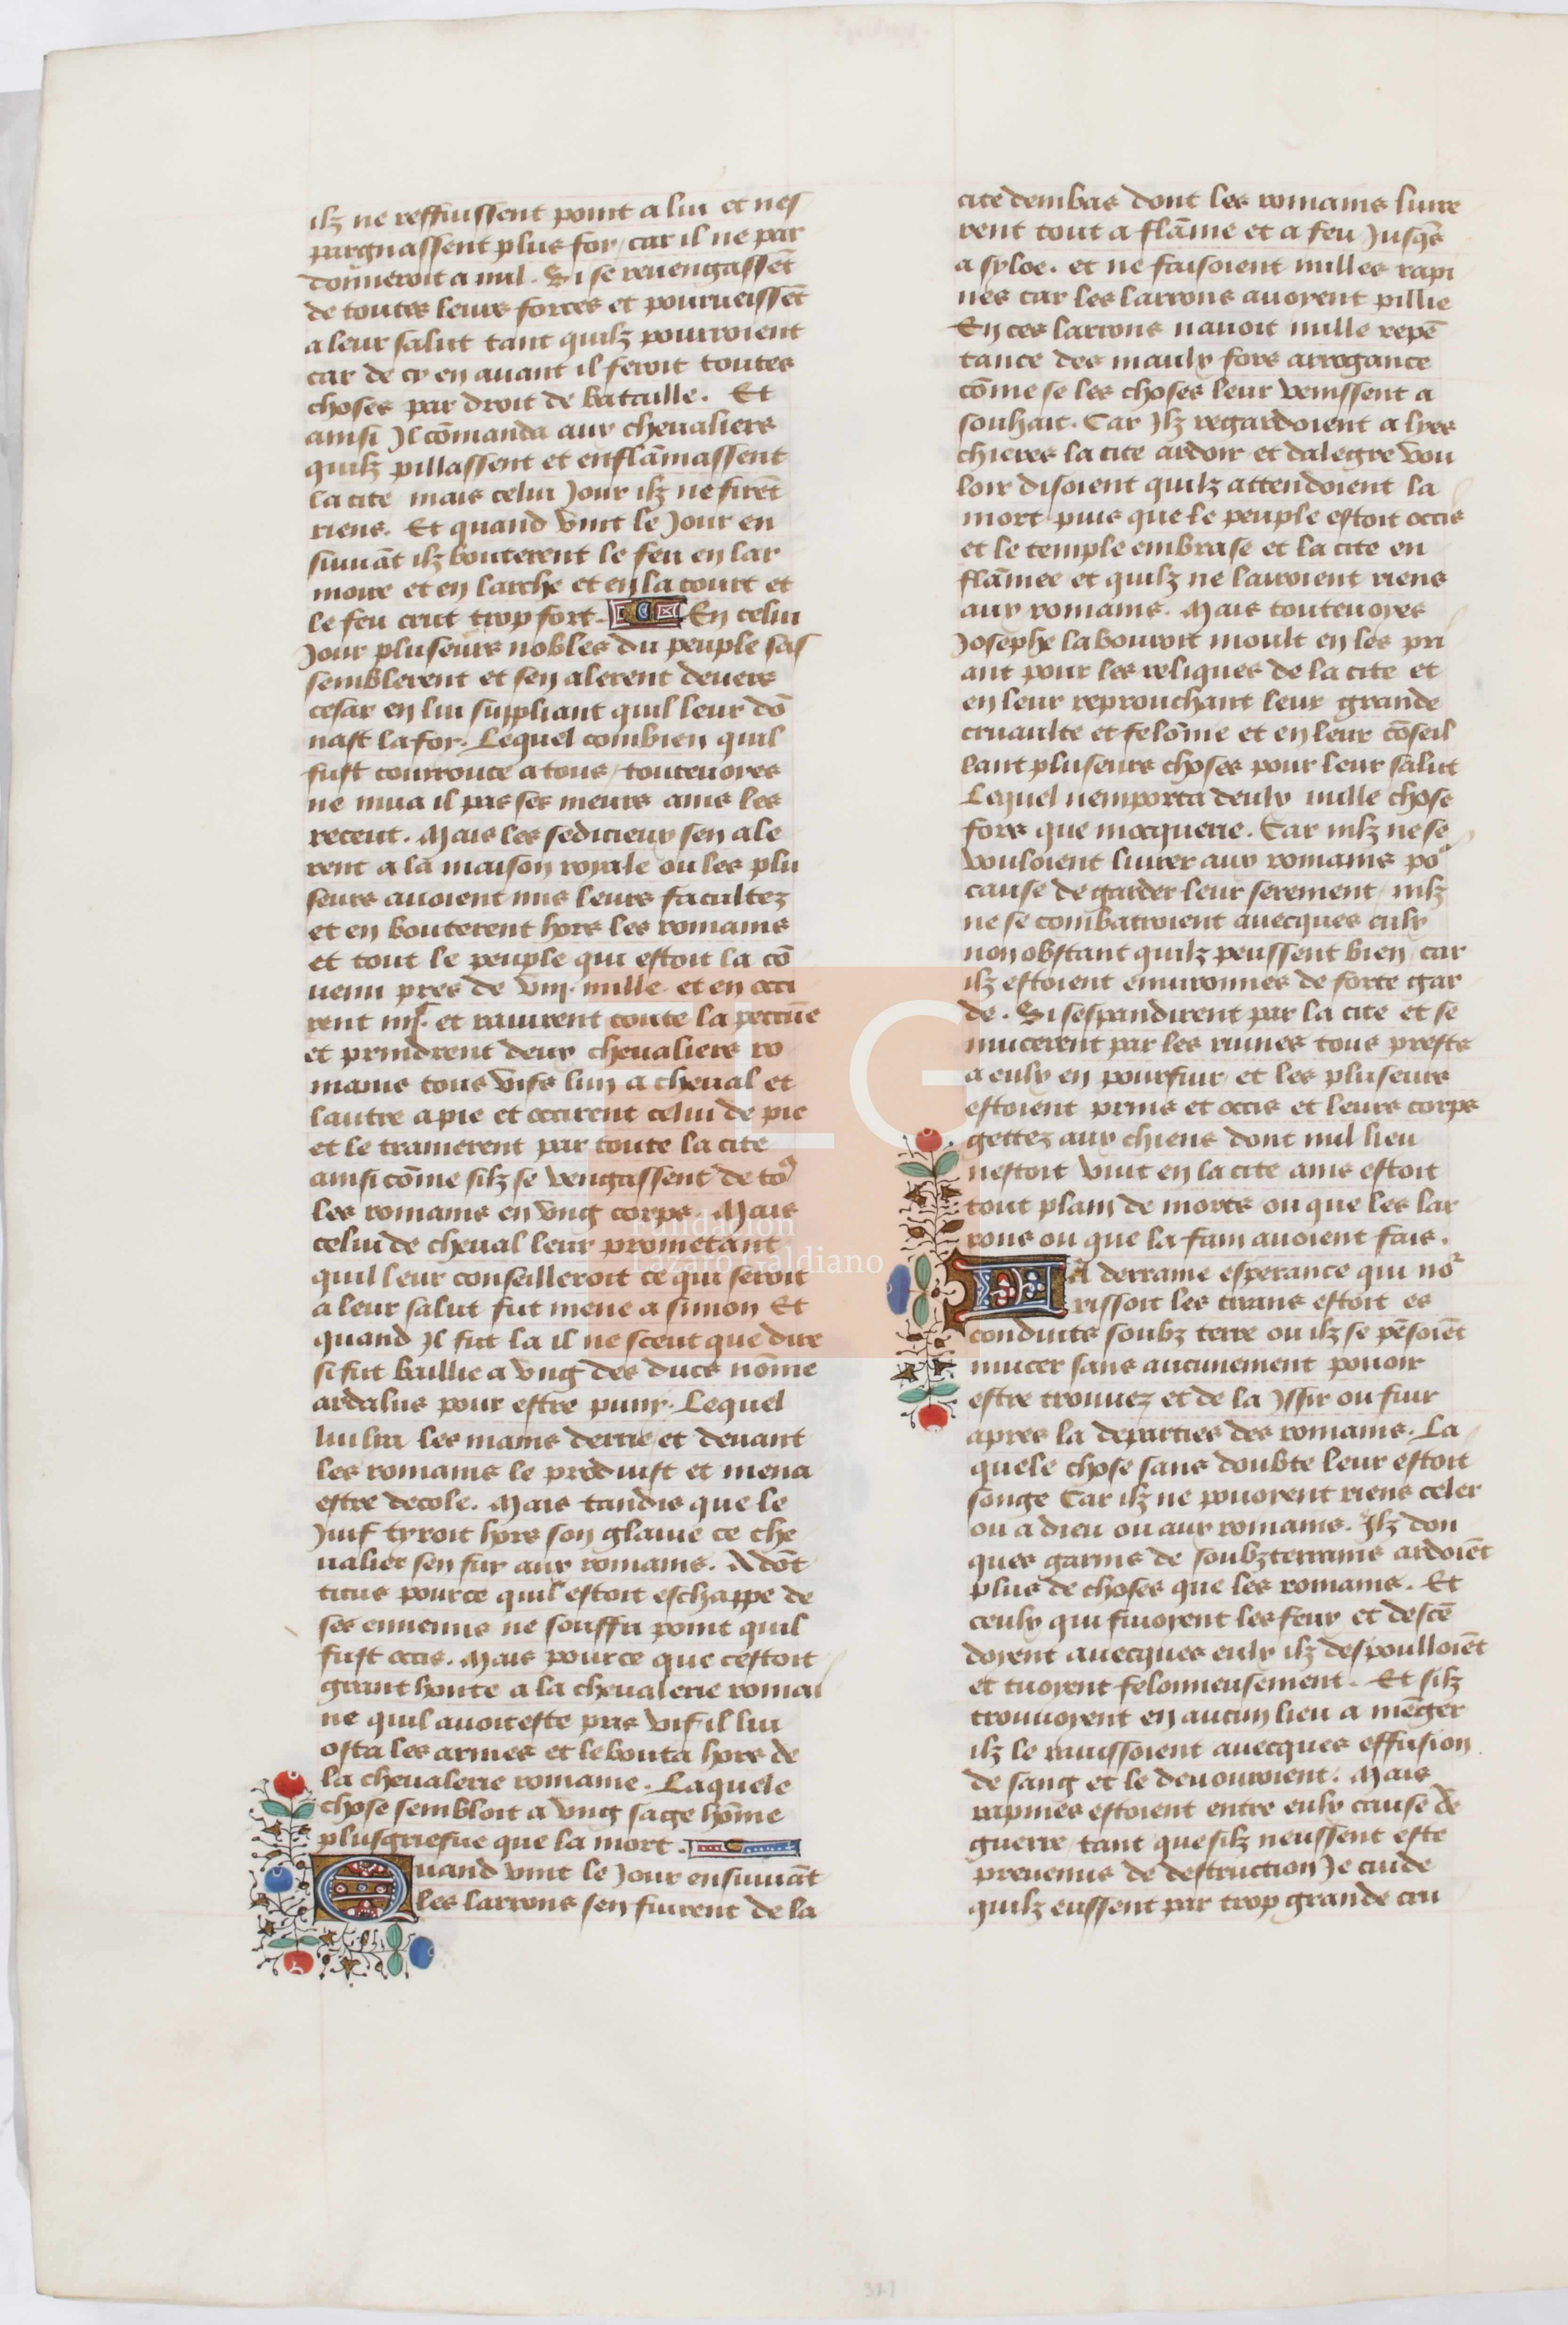 ilz ne reffuissent point a lui et nes
pargnassent plus foy / car il ne par
donneroit a nul . Si se reuengassēt
de toutes leurs forces et pourueissēt
a leur salut tant quilz pourroient
car de cy en auant il feroit toutes
choses par droit de bataille . Et
ainsi Jl cōmanda aux cheualiers
quilz pillassent et enflāmassent
la cite mais celui Jour ilz ne firēt
riens . Et quand vint le Jour en
suiuāt ilz bouterent le feu en lar
moire et en larche et en la court et
le feu crut trop fort . En celui
Jour pluseurs nobles du peuple sas
semblerent et sen alerent deuers
cesar en lui suppliant quil leur dō
nast la foy . Lequel combien quil
fust courrouce a tous / toutevoyes
ne mua il pas ses meurs ains les
receut . Mais les sedicieux sen ale
rent a la maison royale ou les plu
seurs auoient mis leurs facultez
et en bouterent hors les romains
et tout le peuple qui estoit la cō
uenu pres de viij . mille et en occi
rent iiijc . et rauirent toute la peccūe
et prindrent deux cheualiers ro
mains tous vifs lun a cheual et
lautre a pie et occirent celui de pie
et le trainerent par toute la cite
ainsi cōme silz se vengassent de to9
les romains en vng corps . Mais
celui de cheual leur prometant
quil leur conseilleroit ce qui seroit
a leur salut fut mene a simon Et
quand Jl fut la il ne sceut que dire
si fut baillie a vng des ducs nōme
ardalus pour estre puny . Lequel
lui lya les mains derrie et deuant
les romains le produist et mena
estre decole . Mais tandis que le
Juif tyroit hors son glaiue ce che
ualier sen fuy aux romains . A dōt
titus pource quil estoit eschappe de
ses ennemis ne souffri point quil
fust occis . Mais pource que cestoit
grant honte a la cheualerie romai
ne quil auoit este pris vif il lui
osta les armes et le bouta hors de
la cheualerie romaine . Laquele
chose sembloit a vng sage hōme
plus griefue que la mort .
Quand vint le Jour ensuiuāt
les larrons sen fuirent de la
cite dembas dont les romains liure
rent tout a flāme et a feu Jusq̄s
a syloe . et ne faisoient nulles rapi
nes car les larrons auoyent pillie
En ces larrons nauoit nulle repē
tance des maulx fors arrogance
cōme se les choses leur venissent a
souhait . Car Jlz regardoient a lyes
chieres la cite ardoir et dalegre vou
loir disoient quilz attendoient la
mort puis que le peuple estoit occis
et le temple embrase et la cite en
flāmee et quilz ne lairoient riens
aux romains . Mais toutevoyes
Josephe labouroit moult en les pri
ant pour les reliques de la cite et
en leur reprouchant leur grande
cruaulte et felōnie et en leur cōseil
lant pluseurs choses pour leur salut
Lequel nemporta deulx nulle chose
fors que mocquerie . Car nilz ne se
vouloient liurer aux romains po2
cause de garder leur serement / nilz
ne se combatroient auecques eulx
non obstant quilz peussent bien / car
ilz estoient enuironnes de forte gar
de . Si sespandirent par la cite et se
mucerent par les ruines tous prests
a eulx en pourfuir et les pluseurs
estoient prins et occis et leurs corps
gettez aux chiens dont nul lieu
nestoit vuit en la cite ains estoit
tout plain de morts ou que les lar
rons ou que la fain auoient fais .
La derraine esperance qui no2
rissoit les tirans estoit es
conduits soubz terre ou ilz se pēsoiēt
mucer sans aucunement pouoir
estre trouuez et de la Jssir ou fuir
apres la departies des romains . La
quele chose sans doubte leur estoit
songe Car ilz ne pouoyent riens celer
ou a dieu ou aux romains . Jlz don
ques garnis de soubzterrains ardoiēt
plus de choses que les romains . Et
ceulx qui fuioyent les feux et descē
doyent auecques eulx ilz despoulloiēt
et tuoyent felonneusement . Et silz
trouuoyent en aucun lieu a mēger
ilz le rauissoient auecques effusion
de sang et le deuouroient . Mais
rapines estoient entre eulx cause de
guerre / tant que silz neussent este
preuenus de destruction Je cuide
quilz eussent par trop grande cru
LG
Fundación
Lázaro Galdiano
327